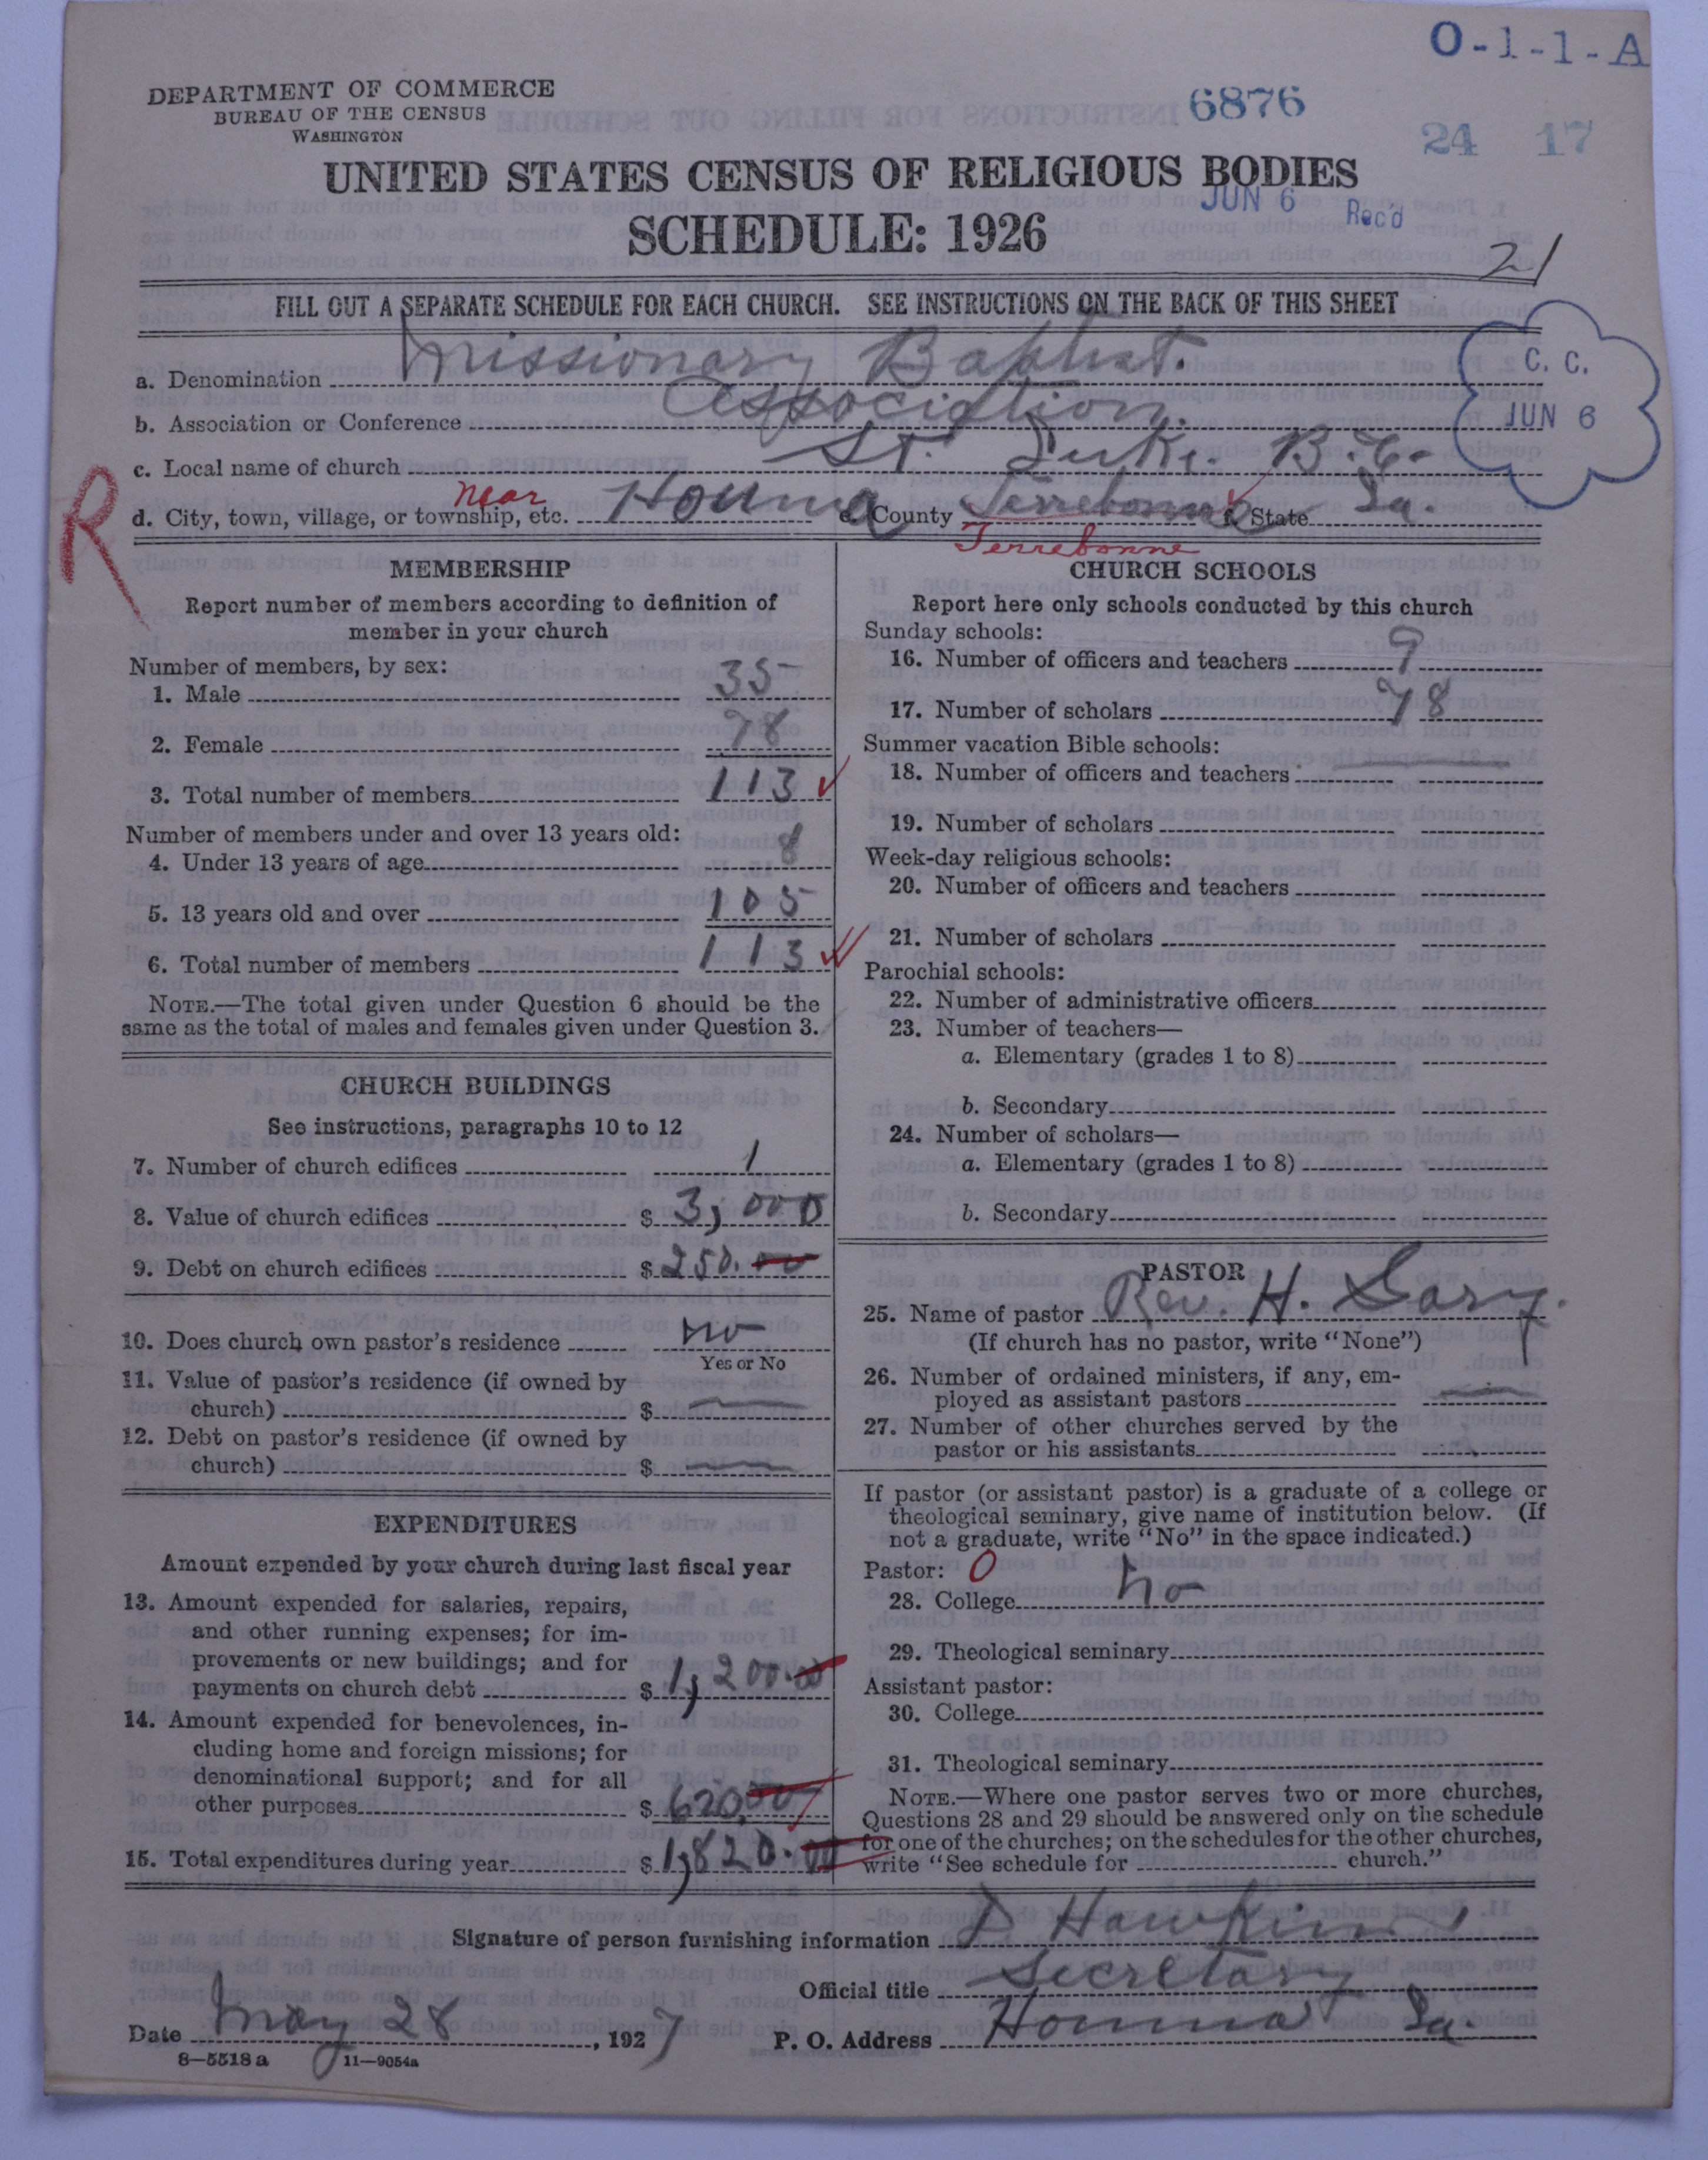 O-1-1-A
DEPARTMENT OF COMMERCE
BUREAU OF THE CENSUS
WASHINGTON
6876
24 17
UNITED STATES CENSUS OF RELIGIOUS BODIES
SCHEDULE: 1926
JUN 6 Rec'd
21
FILL OUT A SEPARATE SCHEDULE FOR EACH CHURCH. SEE INSTRUCTIONS ON THE BACK OF THIS SHEET
a. Denomination Missionary Baptist.
b. Association or Conference Association.
c. Local name of church St. Luke. B. C.
C. C.
JUN 6
R
d. City, town, village, or township, etc. near Houma e. County Terrebonne f. State La.
Terrebonne
MEMBERSHIP
Report number of members according to definition of
member in your church
Number of members, by sex:
1. Male 35
2. Female 78
3. Total number of members 113
Number of members under and over 13 years old:
4. Under 13 years of age 8
5. 13 years old and over 105
6. Total number of members 113
NOTE.—The total given under Question 6 should be the
same as the total of males and females given under Question 3.
CHURCH BUILDINGS
See instructions, paragraphs 10 to 12
7. Number of church edifices 1
8. Value of church edifices $ 3,000
9. Debt on church edifices $ 250.00
10. Does church own pastor's residence no
Yes or No
11. Value of pastor's residence (if owned by
church) $
12. Debt on pastor's residence (if owned by
church) $
EXPENDITURES
Amount expended by your church during last fiscal year
13. Amount expended for salaries, repairs,
and other running expenses; for im-
provements or new buildings; and for
payments on church debt $ 1,200.00
14. Amount expended for benevolences, in-
cluding home and foreign missions; for
denominational support; and for all
other purposes $ 620.00
15. Total expenditures during year $ 1,820.00
CHURCH SCHOOLS
Report here only schools conducted by this church
Sunday schools:
16. Number of officers and teachers 9
17. Number of scholars 78
Summer vacation Bible schools:
18. Number of officers and teachers
19. Number of scholars
Week-day religious schools:
20. Number of officers and teachers
21. Number of scholars
Parochial schools:
22. Number of administrative officers
23. Number of teachers—
a. Elementary (grades 1 to 8)
b. Secondary
24. Number of scholars—
a. Elementary (grades 1 to 8)
b. Secondary
PASTOR
25. Name of pastor Rev. H. Gary.
(If church has no pastor, write "None")
26. Number of ordained ministers, if any, em-
ployed as assistant pastors
27. Number of other churches served by the
pastor or his assistants
If pastor (or assistant pastor) is a graduate of a college or
theological seminary, give name of institution below. (If
not a graduate, write "No" in the space indicated.)
Pastor: 0
28. College no
29. Theological seminary
Assistant pastor:
30. College
31. Theological seminary
NOTE.—Where one pastor serves two or more churches,
Questions 28 and 29 should be answered only on the schedule
for one of the churches; on the schedules for the other churches,
write "See schedule for church."
Signature of person furnishing information D Hawkins
Official title Secretary
Date May 28, 1927 P. O. Address Houma La.
8—5518 a 11—9054a